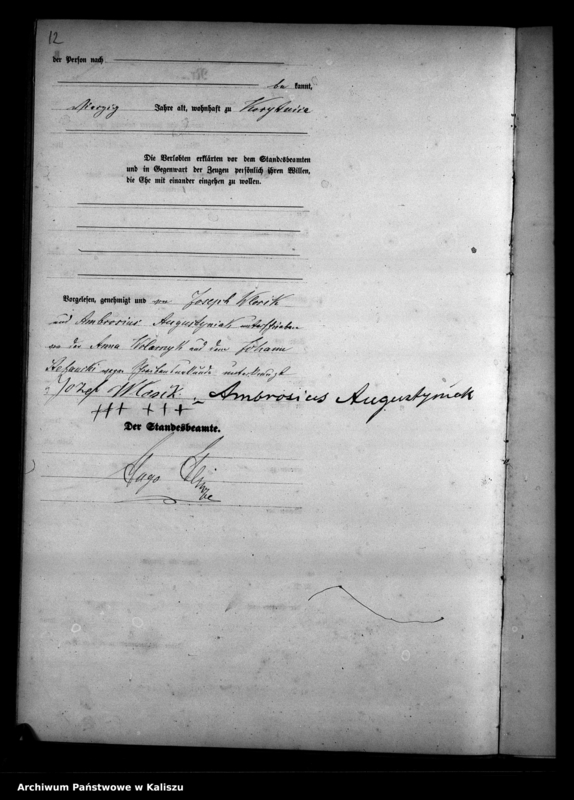 12
der Person nach
be kannt,
vierzig Jahre alt, wohnhaft zu Korytnica
Die Verlobten erklärten vor dem Standesbeamten
und in Gegenwart der Zeugen persönlich ihren Willen,
die Ehe mit einander eingehen zu wollen.
Vorgelesen, genehmigt und von Joseph Wlosik
und Ambrosius Augustyniak unterschrieben
von der Anna und dem Johann
wegen Schreibensunkunde unterkreuzt
Józef Wlosik. Ambrosius Augustyniak
+++ +++
Der Standesbeamte.
Hugo
Archiwum Państwowe w Kaliszu